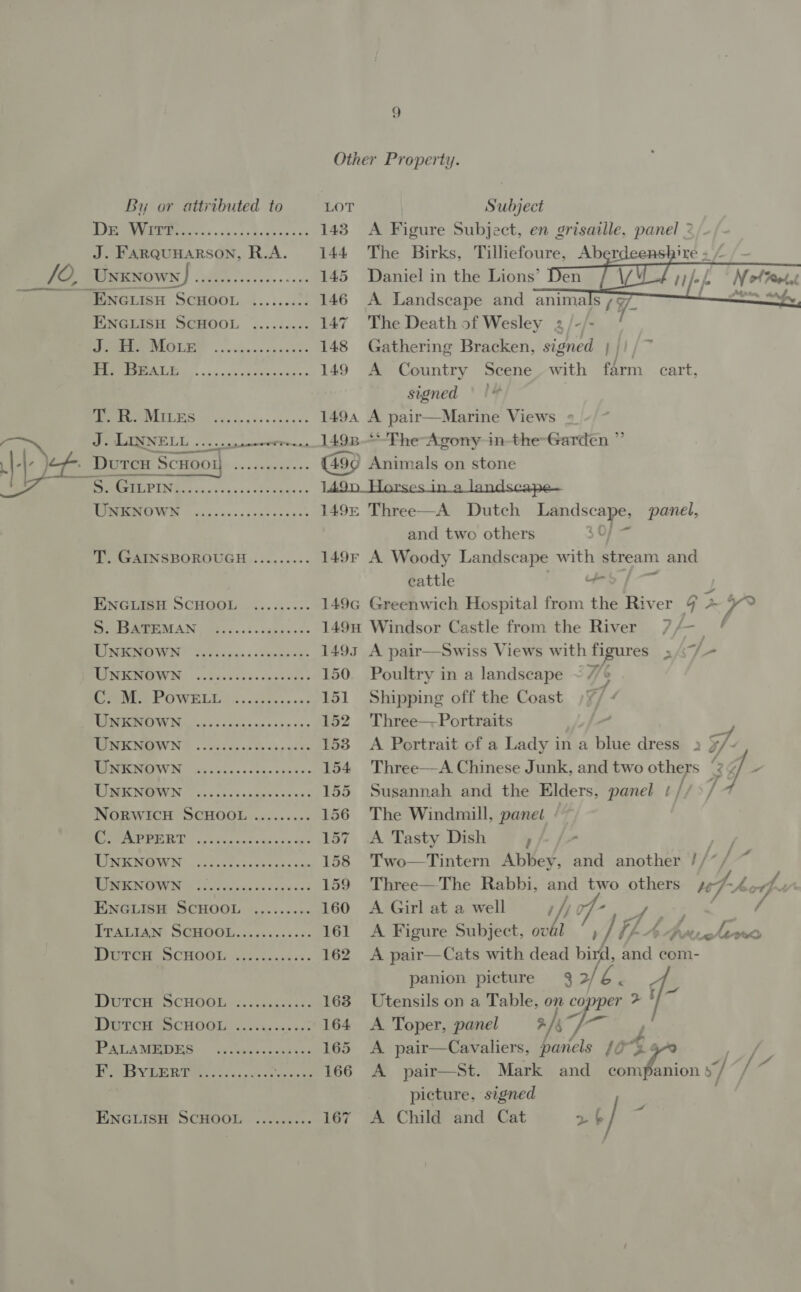 9
Other Property.
By or attributed to LOT Subject
DE WITT........................ 143 A Figure Subject, en grisaille, panel 2/-/-
J. FARQUHARSON, R.A. 144 The Birks, Tilliefoure, Aberdeenshire
10, UNKNOWN ..................... 145 Daniel in the Lions' Den
ENGLISH SCHOOL ......... 146 A Landscape and animals
ENGLISH SCHOOL ......... 147 The Death of Wesley 2/-/-
J. H. MOLE .................. 148 Gathering Bracken, signed
H. BEALE ..................... 149 A Country Scene with farm cart,
signed
T. R. MILES .................. 149A A pair—Marine Views
J. LINNELL ................... 149B “The Agony in the Garden”
DUTCH SCHOOL ............ 149C Animals on stone
S. GILPIN..................... 149D Horses in a landscape
UNKNOWN .................. 149E Three—A Dutch Landscape, panel,
and two others 30/-
T. GAINSBOROUGH ......... 149F A Woody Landscape with stream and
cattle
ENGLISH SCHOOL ......... 149G Greenwich Hospital from the River
S. BATEMAN ............... 149H Windsor Castle from the River 7/-
UNKNOWN .................. 149J A pair—Swiss Views with figures
UNKNOWN .................. 150 Poultry in a landscape
C. M. POWELL ............ 151 Shipping off the Coast
UNKNOWN .................. 152 Three—Portraits
UNKNOWN .................. 153 A Portrait of a Lady in a blue dress
UNKNOWN .................. 154 Three—A Chinese Junk, and two others
UNKNOWN .................. 155 Susannah and the Elders, panel
NORWICH SCHOOL ......... 156 The Windmill, panel
C. APPERT .................. 157 A Tasty Dish
UNKNOWN .................. 158 Two—Tintern Abbey, and another
UNKNOWN .................. 159 Three—The Rabbi, and two others
ENGLISH SCHOOL ......... 160 A Girl at a well
ITALIAN SCHOOL............ 161 A Figure Subject, oval
DUTCH SCHOOL ............ 162 A pair—Cats with dead bird, and com-
panion picture
DUTCH SCHOOL ............ 163 Utensils on a Table, on copper
DUTCH SCHOOL ............ 164 A Toper, panel
PALAMEDES ............... 165 A pair—Cavaliers, panels
F. BYLERT .................. 166 A pair—St. Mark and companion
picture, signed
ENGLISH SCHOOL ......... 167 A Child and Cat